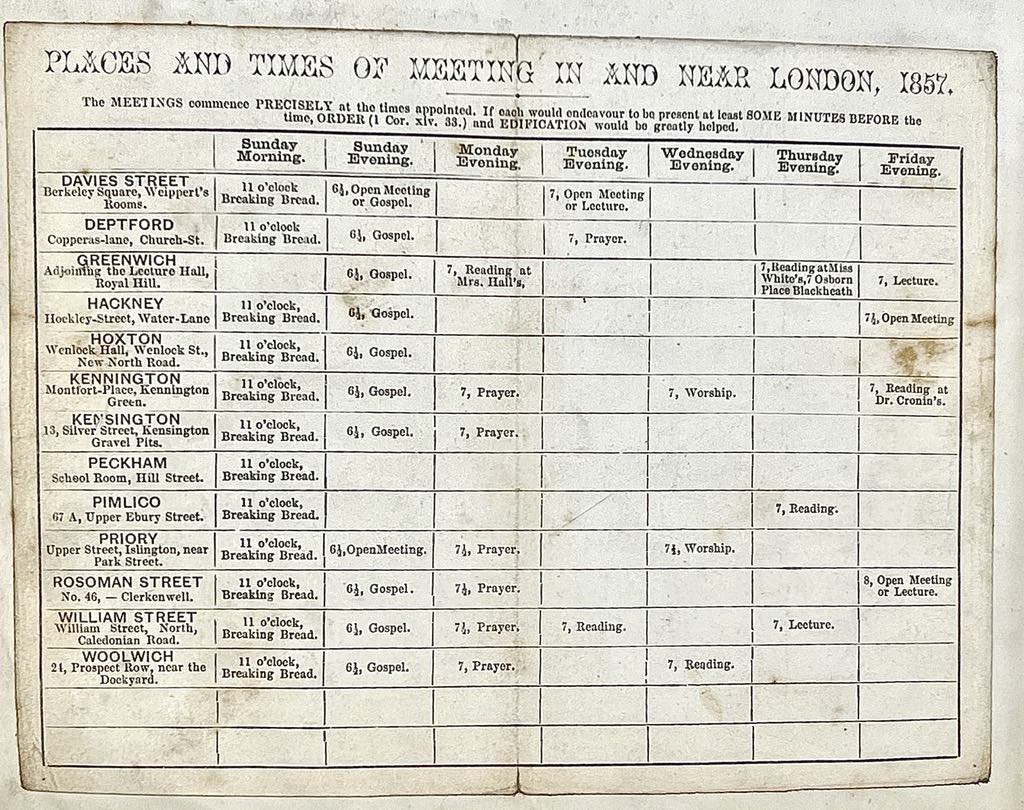 PLACES AND TIMES OF MEETING IN AND NEAR LONDON, 1857.
The MEETINGS commence PRECISELY at the times appointed. If each would endeavour to be present at least SOME MINUTES BEFORE the
time, ORDER (1 Cor. xiv. 33.) and EDIFICATION would be greatly helped.
Sunday Morning. Sunday Evening. Monday Evening. Tuesday Evening. Wednesday Evening. Thursday Evening. Friday Evening.
DAVIES STREET
Berkeley Square, Weippert's
Rooms.
11 o'clock
Breaking Bread.
6½, Open Meeting
or Gospel.
7, Open Meeting
or Lecture.
DEPTFORD
Copperas-lane, Church-St.
11 o'clock
Breaking Bread.
6½, Gospel.
7, Prayer.
GREENWICH
Adjoining the Lecture Hall,
Royal Hill.
6½, Gospel.
7, Reading at
Mrs. Hall's,
7, Reading at Miss
White's, 7 Osborn
Place Blackheath
7, Lecture.
HACKNEY
Hockley-Street, Water-Lane
11 o'clock,
Breaking Bread.
6½, Gospel.
7½, Open Meeting
HOXTON
Wenlock Hall, Wenlock St.,
New North Road.
11 o'clock,
Breaking Bread.
6½, Gospel.
KENNINGTON
Montfort-Place, Kennington
Green.
11 o'clock,
Breaking Bread.
6½, Gospel.
7, Prayer.
7, Worship.
7, Reading at
Dr. Cronin's.
KENSINGTON
13, Silver Street, Kensington
Gravel Pits.
11 o'clock,
Breaking Bread.
6½, Gospel.
7, Prayer.
PECKHAM
School Room, Hill Street.
11 o'clock,
Breaking Bread.
PIMLICO
67 A, Upper Ebury Street.
11 o'clock,
Breaking Bread.
7, Reading.
PRIORY
Upper Street, Islington, near
Park Street.
11 o'clock,
Breaking Bread.
6½, Open Meeting.
7½, Prayer.
7½, Worship.
ROSOMAN STREET
No. 46, — Clerkenwell.
11 o'clock,
Breaking Bread.
6½, Gospel.
7½, Prayer.
8, Open Meeting
or Lecture.
WILLIAM STREET
William Street, North,
Caledonian Road.
11 o'clock,
Breaking Bread.
6½, Gospel.
7½, Prayer.
7, Reading.
7, Lecture.
WOOLWICH
21, Prospect Row, near the
Dockyard.
11 o'clock,
Breaking Bread.
6½, Gospel.
7, Prayer.
7, Reading.